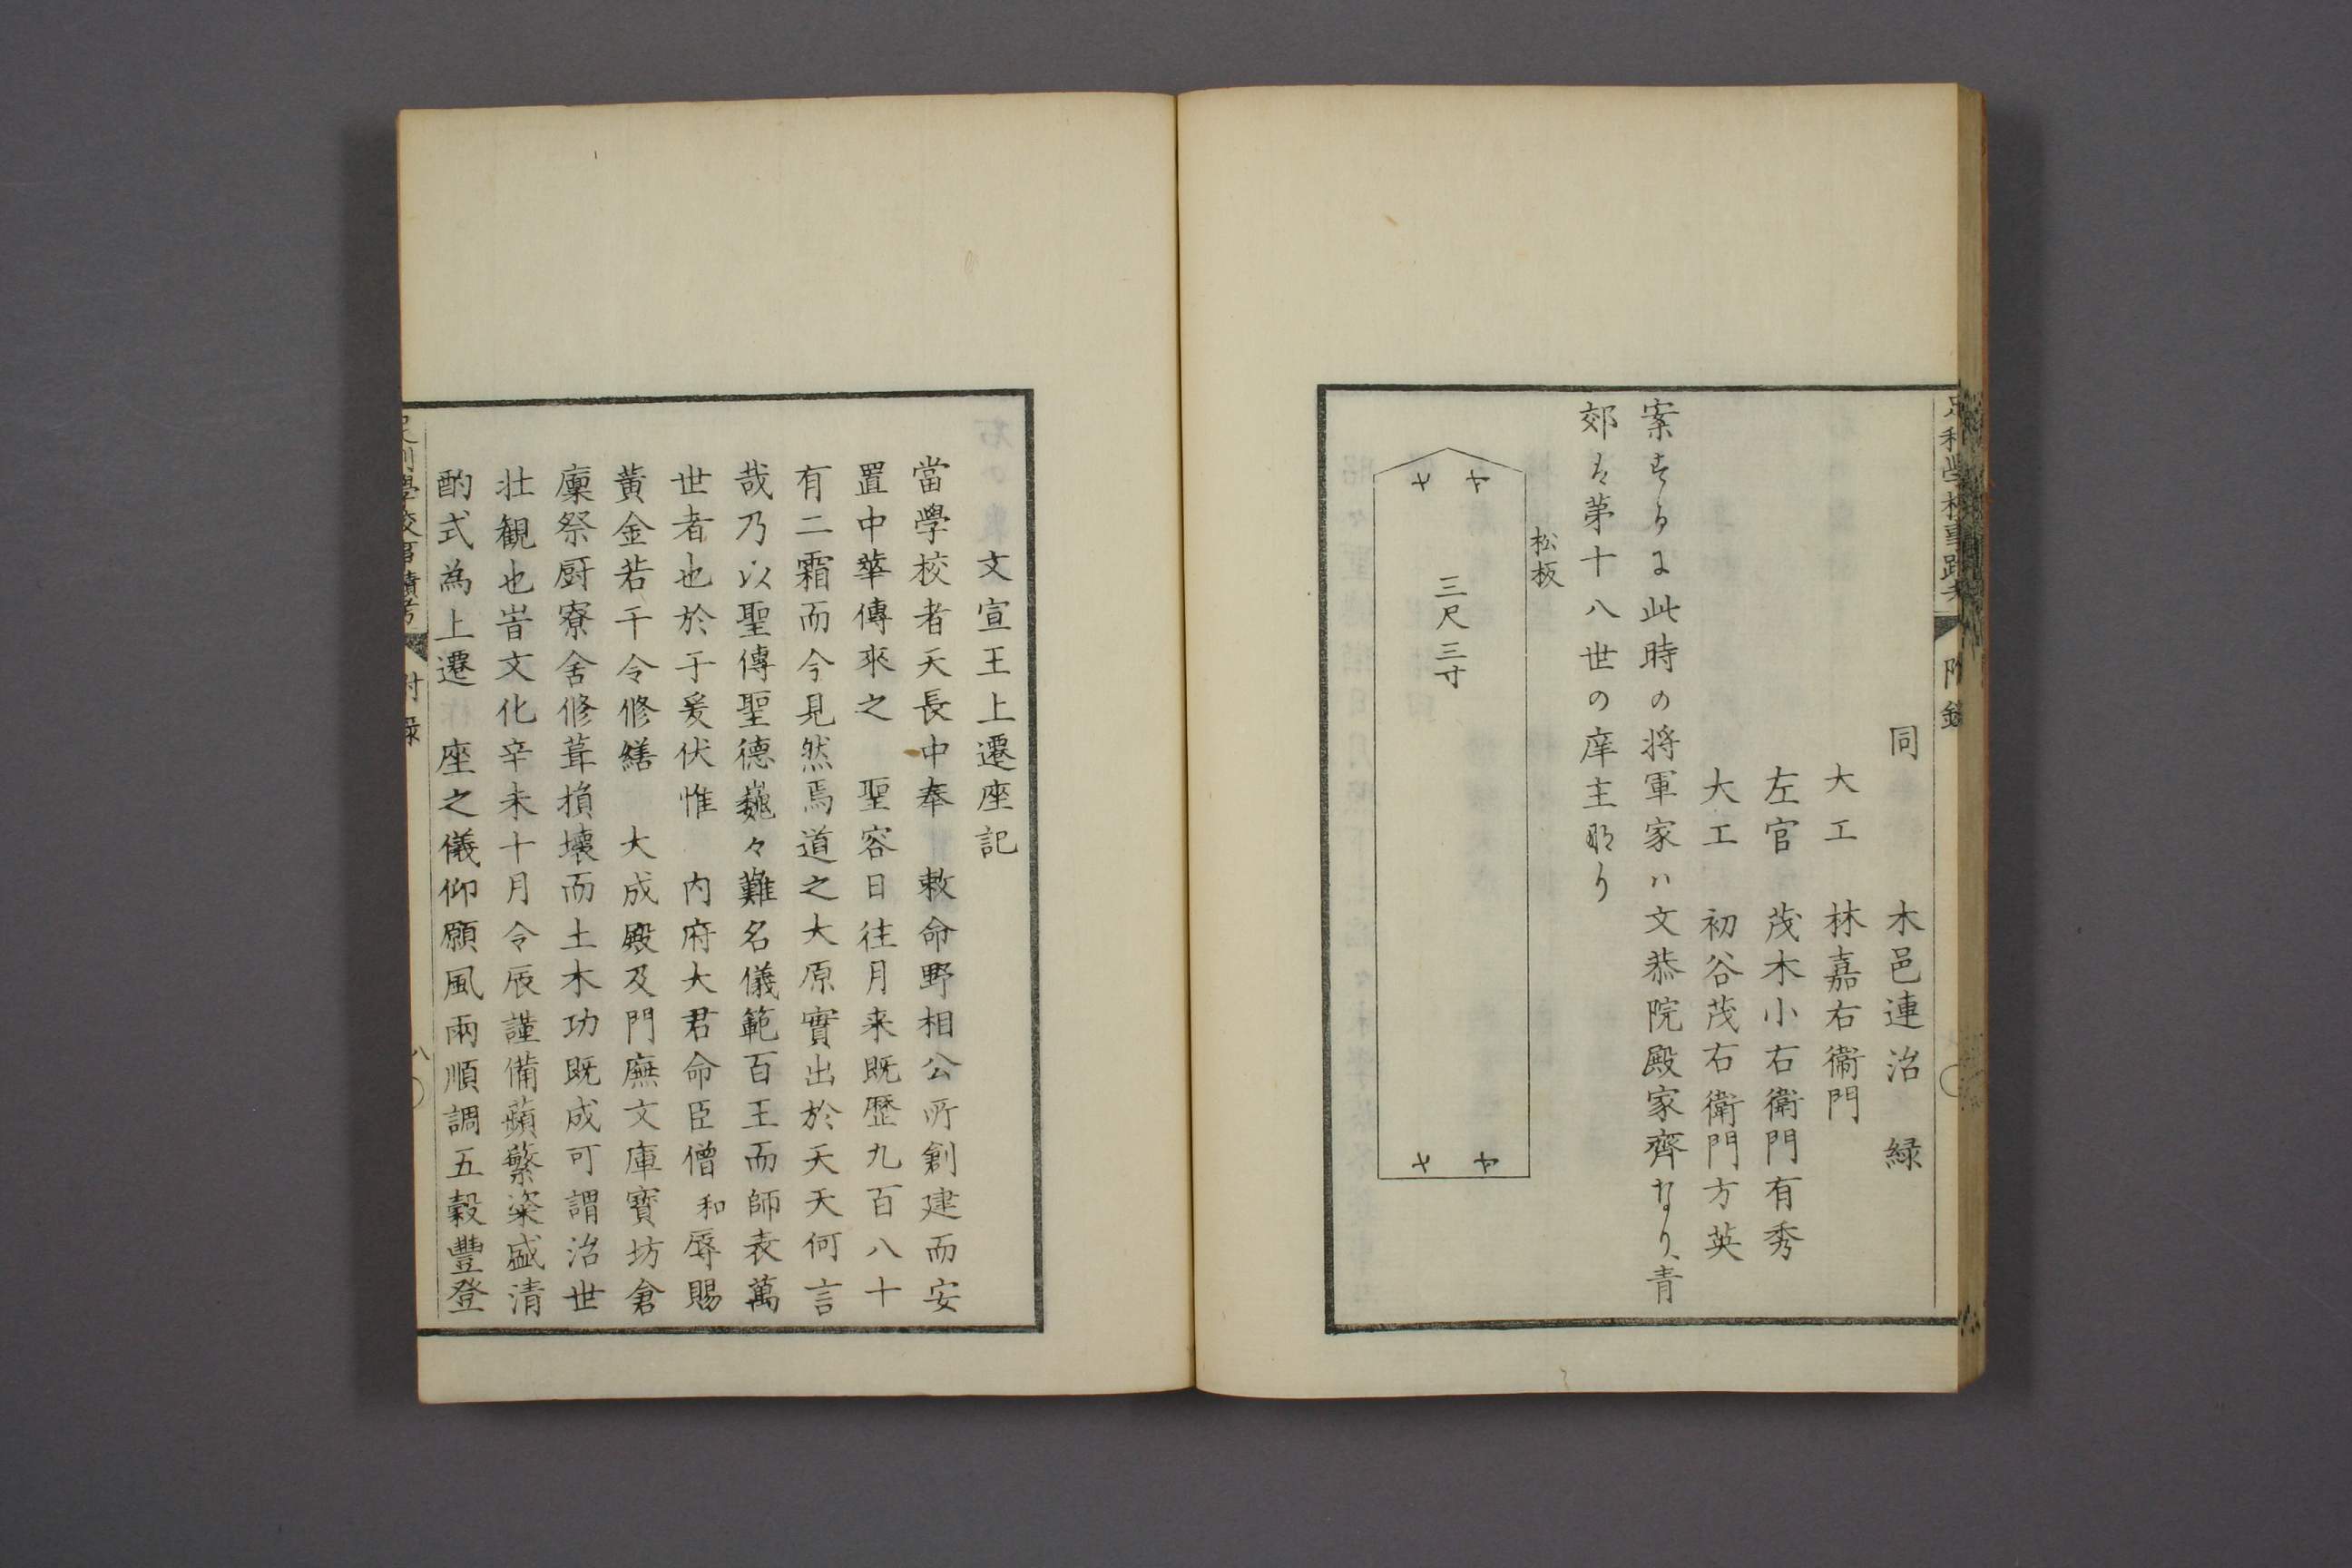 足利學校事蹟考 附錄
同 木邑連治 緑
大工 林嘉右衞門
左官 茂木小右衞門有秀
大工 初谷茂右衞門方英
案するに此時の将軍家ハ文恭院殿家齊なり、青
郊は第十八世の庠主那り
松板
三尺三寸
文宣王上遷座記
當學校者天長中奉 敕命野相公所創建而安
置中華傳來之 聖容日往月来既歷九百八十
有二霜而今見然焉道之大原實出於天天何言
哉乃以聖傳聖德巍々難名儀範百王而師表萬
世者也於于爰伏惟 内府大君命臣僧和辱賜
黃金若干令修繕 大成殿及門廡文庫寶坊倉
廩祭厨寮舍修葺損壞而土木功既成可謂治世
壮觀也旹文化辛未十月令辰謹備蘋蘩粢盛清
酌式為上遷 座之儀仰願風雨順調五穀豐登
足利學校事蹟考 附錄 八